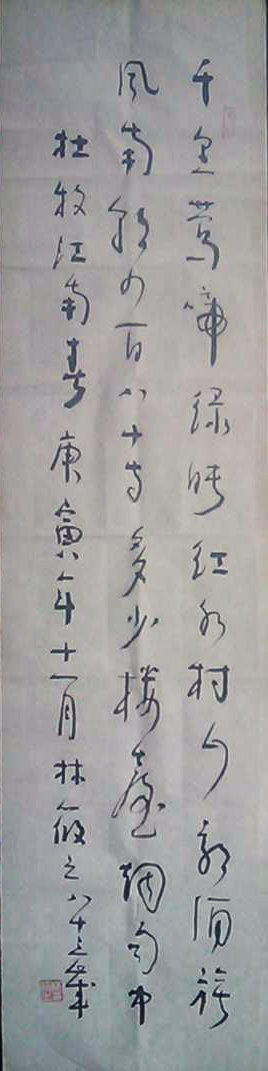 千里莺啼绿映红水村山郭酒旗
风南朝四百八十寺多少楼臺烟雨中
杜牧江南春 庚寅年十一月 林筱之八十三歲